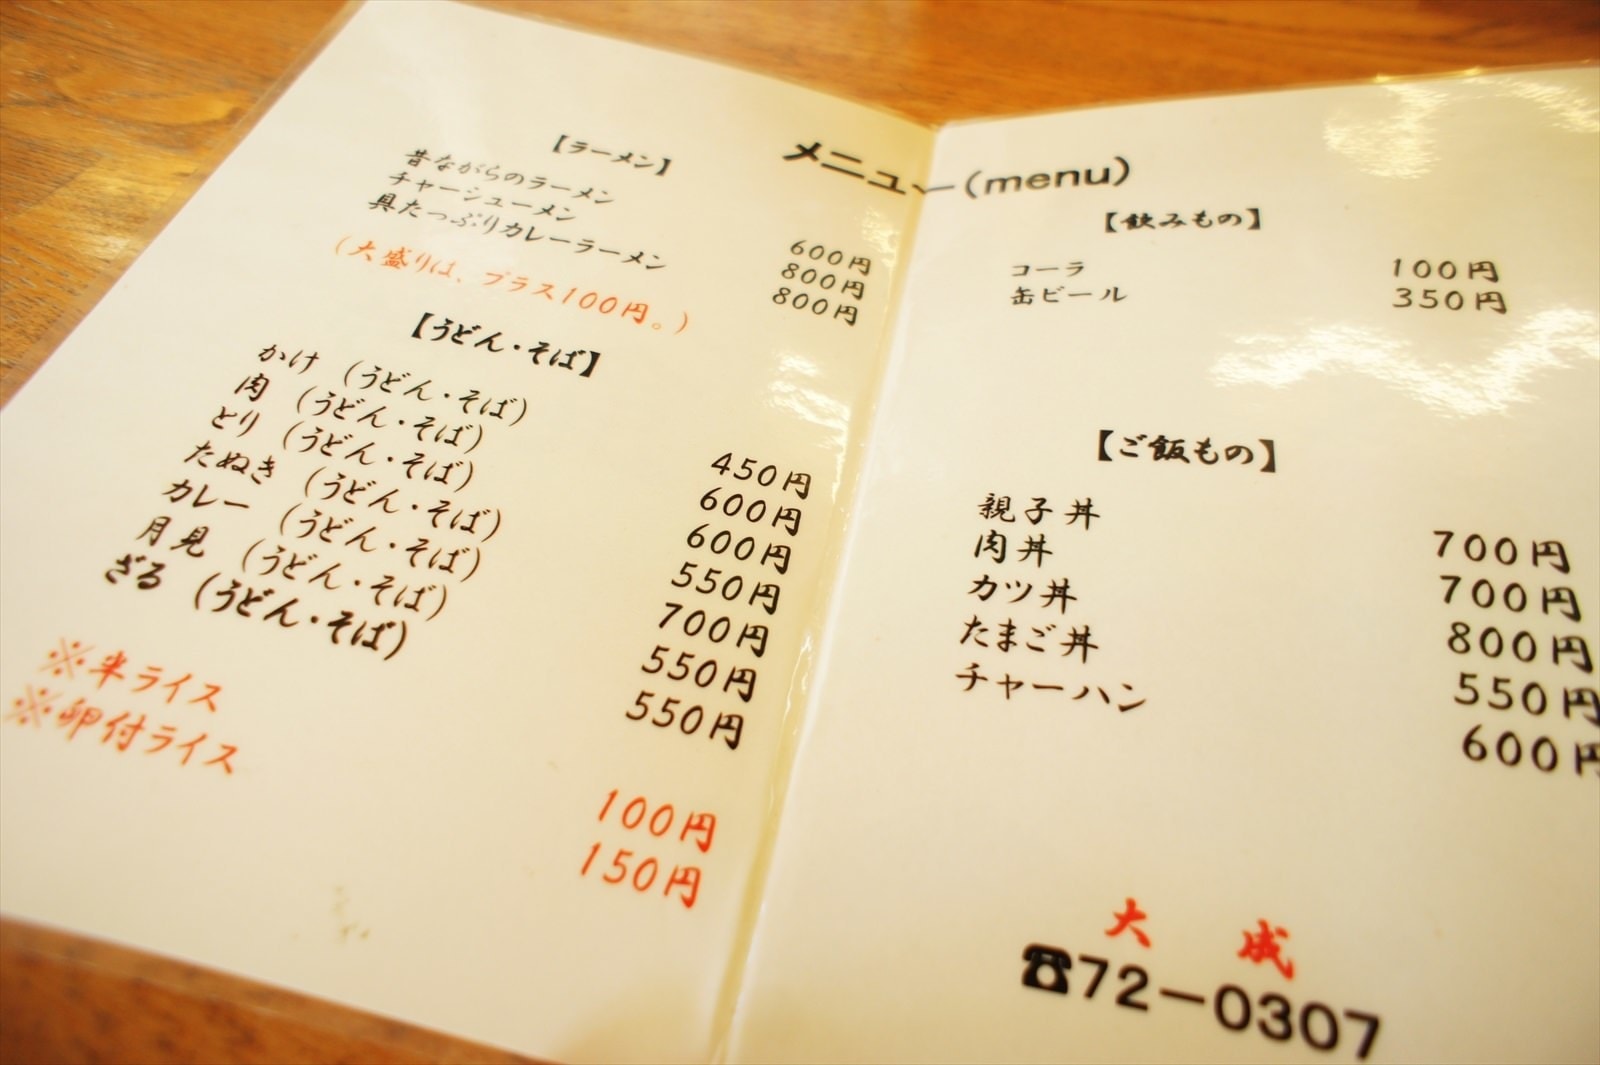 メニュー(menu)
【ラーメン】
昔ながらのラーメン 600円
チャーシューメン 800円
具たっぷりカレーラーメン 800円
(大盛りは、プラス100円。)
【うどん・そば】
かけ (うどん・そば) 450円
肉 (うどん・そば) 600円
とり (うどん・そば) 600円
たぬき (うどん・そば) 550円
カレー (うどん・そば) 700円
月見 (うどん・そば) 550円
ざる (うどん・そば) 550円
※半ライス 100円
※卵付ライス 150円
【飲みもの】
コーラ 100円
缶ビール 350円
【ご飯もの】
親子丼 700円
肉丼 700円
カツ丼 800円
たまご丼 550円
チャーハン 600円
大 成
☎72-0307